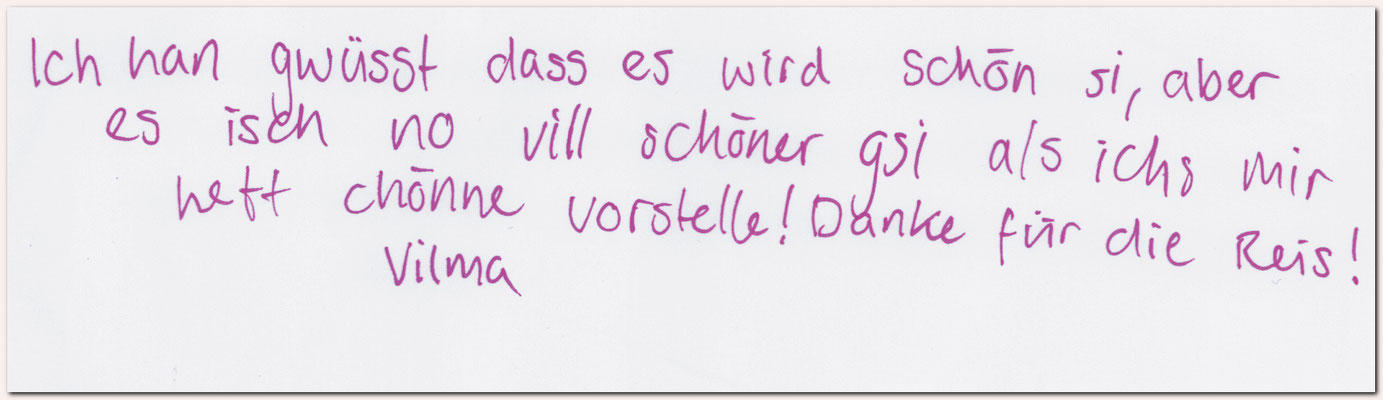 Ich han gwüsst dass es wird schön si, aber
es isch no vill schöner gsi als ichs mir
hett chönne vorstelle! Danke für die Reis!
Vilma